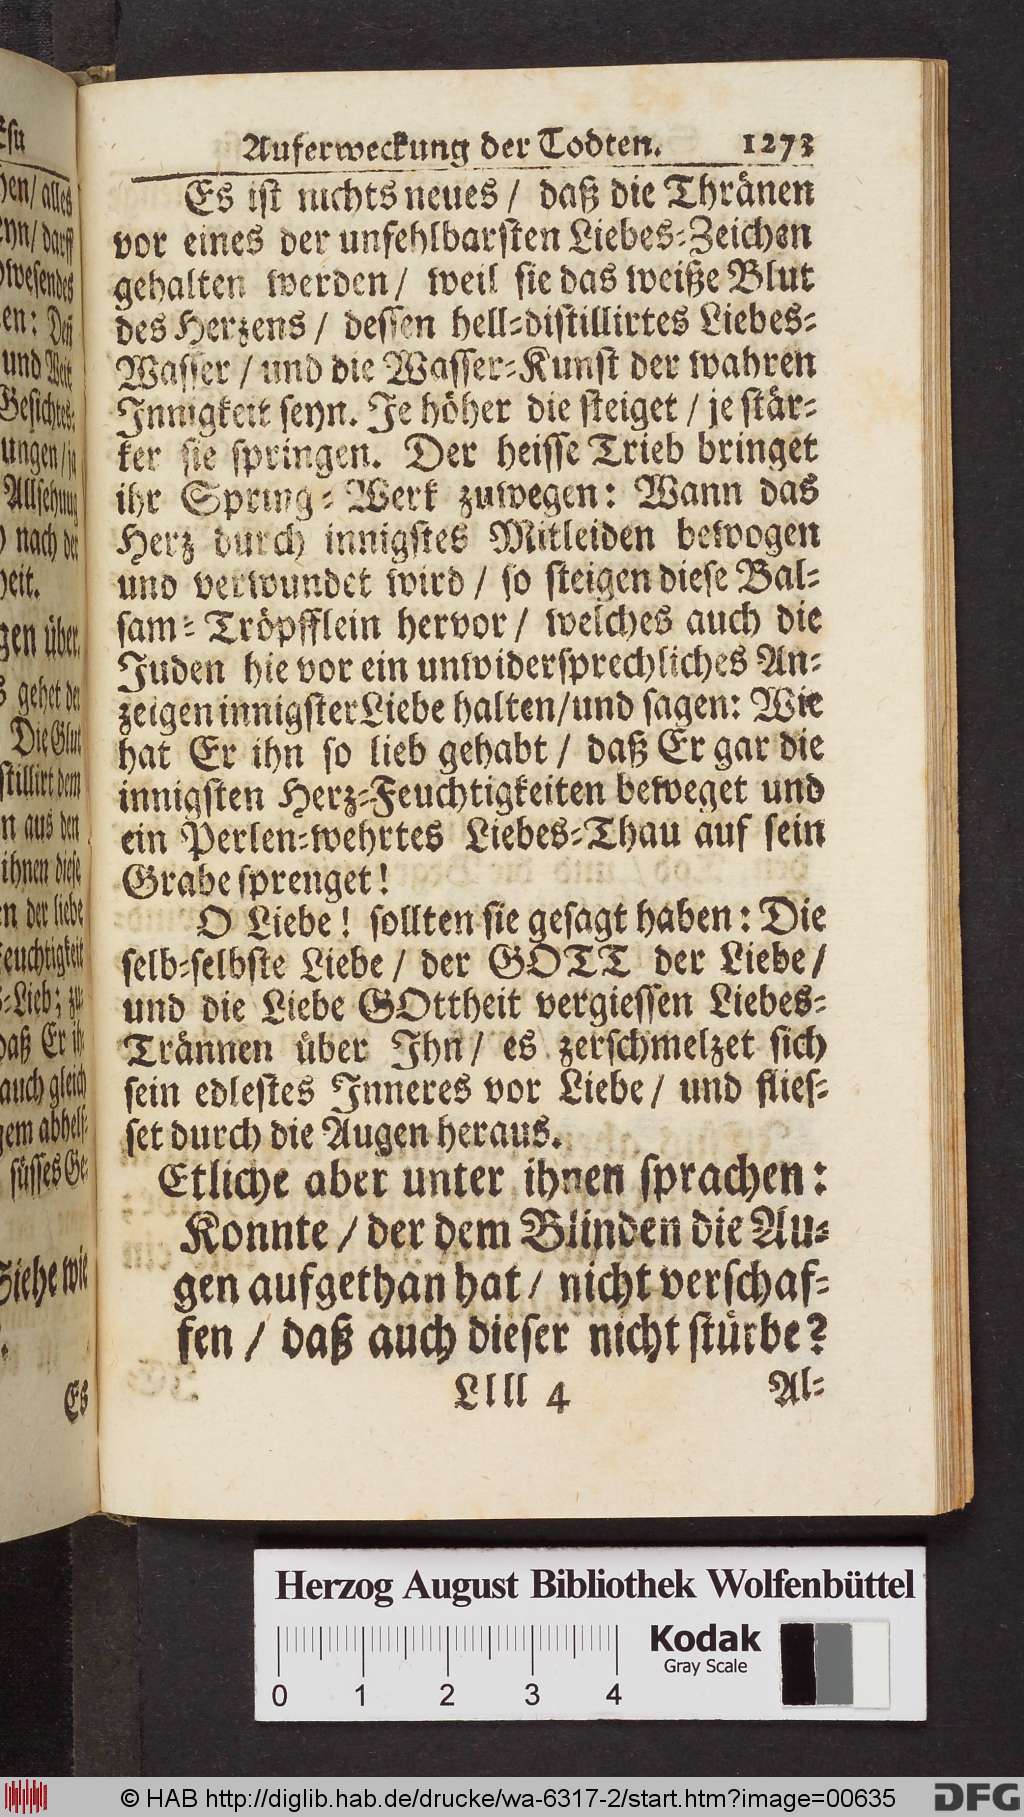 Auferweckung der Todten. 1273
Es ist nichts neues / daß die Thränen
vor eines der unfehlbarsten Liebes-Zeichen
gehalten werden / weil sie das weiße Blut
des Herzens / dessen hell-distillirtes Liebes-
Wasser / und die Wasser-Kunst der wahren
Innigkeit seyn. Je höher die steiget / je stär-
ker sie springen. Der heisse Trieb bringet
ihr Spring-Werk zuwegen: Wann das
Herz durch innigstes Mitleiden bewogen
und verwundet wird / so steigen diese Bal-
sam-Tröpfflein hervor / welches auch die
Juden hie vor ein unwidersprechliches An-
zeigen innigster Liebe halten / und sagen: Wie
hat Er ihn so lieb gehabt / daß Er gar die
innigsten Herz-Feuchtigkeiten beweget und
ein Perlen-wehrtes Liebes-Thau auf sein
Grabe sprenget!
O Liebe! sollten sie gesagt haben: Die
selb-selbste Liebe / der GOTT der Liebe /
und die Liebe GOttheit vergiessen Liebes-
Trännen über Ihn / es zerschmelzet sich
sein edlestes Inneres vor Liebe / und flies-
set durch die Augen heraus.
Etliche aber unter ihnen sprachen:
Konnte / der dem Blinden die Au-
gen aufgethan hat / nicht verschaf-
fen / daß auch dieser nicht stürbe?
Llll 4 Al-
Esu
hen / alles
eyn / darff
wesendes
en: Den
und Weit
Gesichtes-
ungen / ja
Allsehung
nach der
heit.
gen über.
gehet der
Die Glut
stillirt dem
n aus den
ihnen diese
n der liebe
euchtigkeit
-Lieb; zu-
daß Er ih-
auch gleich
gem abhelf-
süsses Ge-
Siehe wie
Es
Herzog August Bibliothek Wolfenbüttel
Kodak
Gray Scale
0 1 2 3 4
© HAB http://diglib.hab.de/drucke/wa-6317-2/start.htm?image=00635
DFG